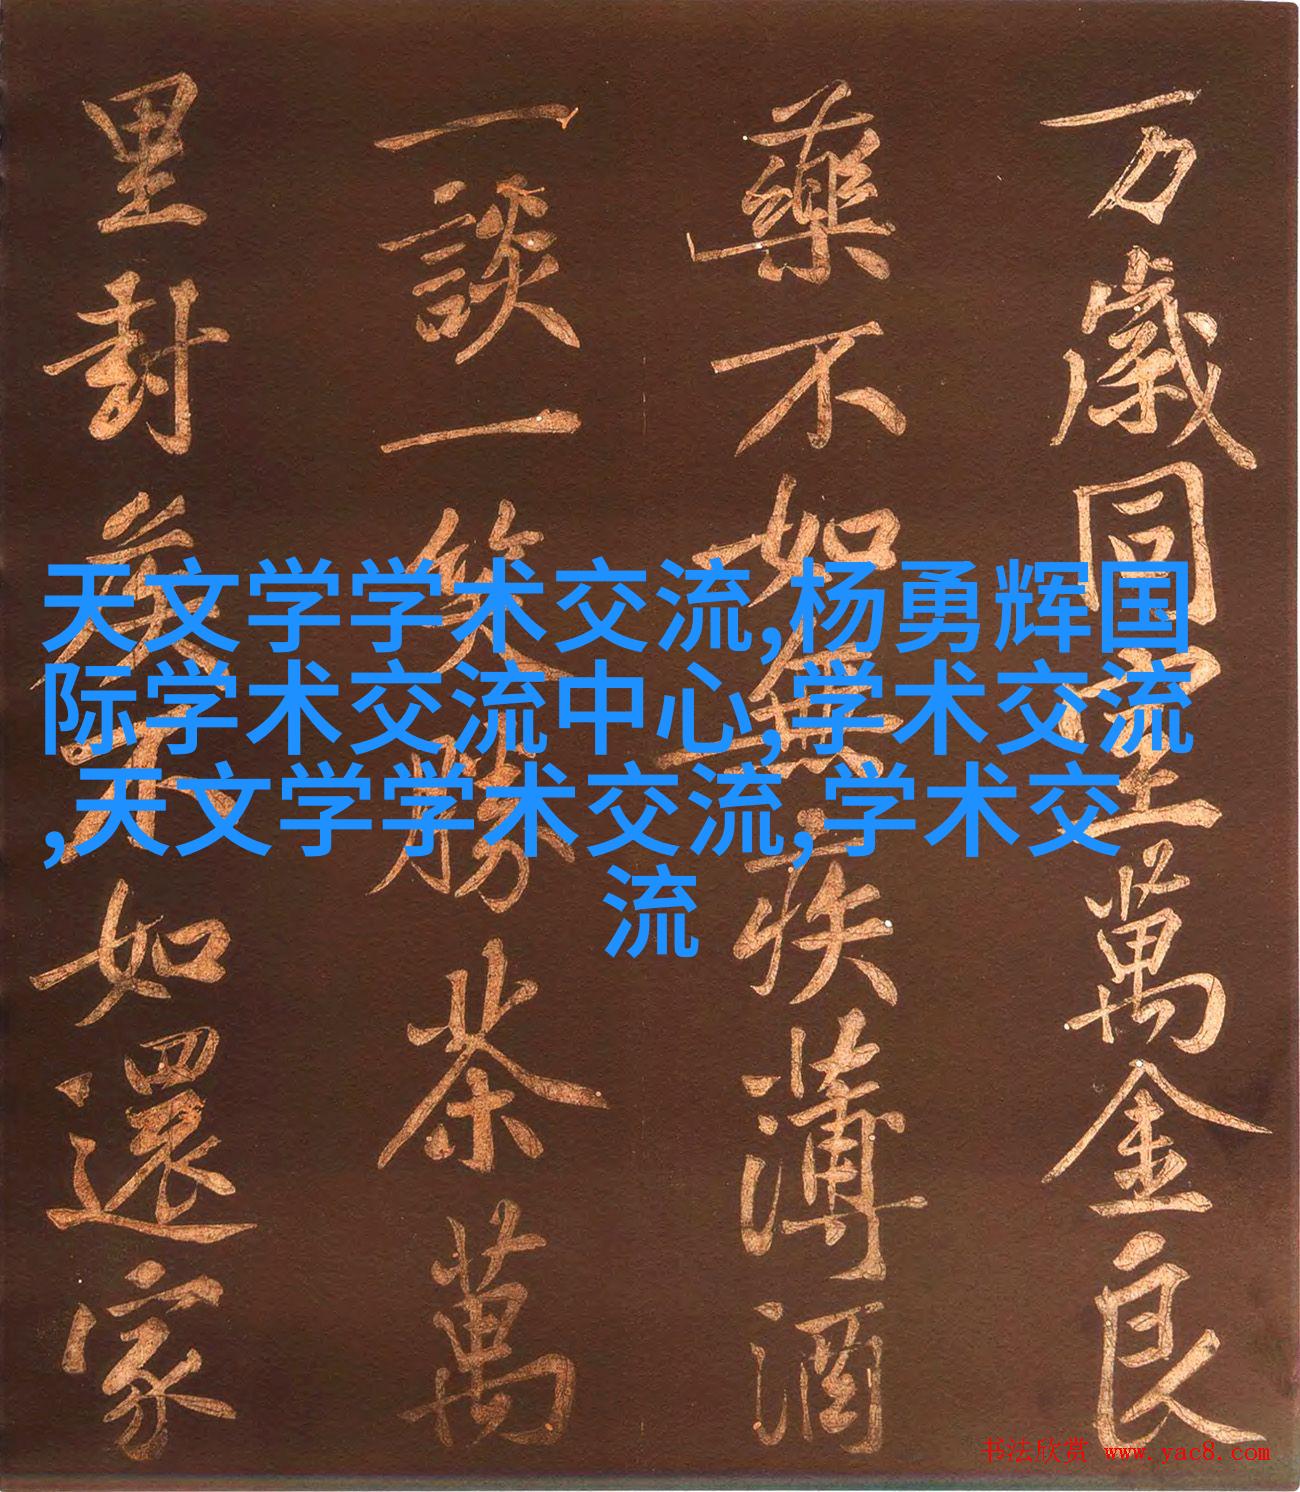 万歲同室萬金良
藥不如無疾薄酒
一談一笑勝茶萬
里封侯不如還家
天文学学术交流,杨勇辉国
际学术交流中心,学术交流
,天文学学术交流,学术交
流
书法欣赏 www.yac8.com